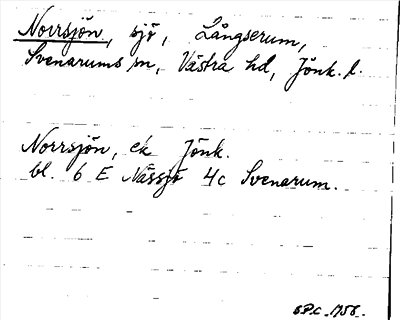 Norrsjön, sjö, Långserum,
Svenarums sn, Västra hd, Jönk. l.
Norrsjön, ek Jönk.
bl. 6 E Nässjö 4c Svenarum.